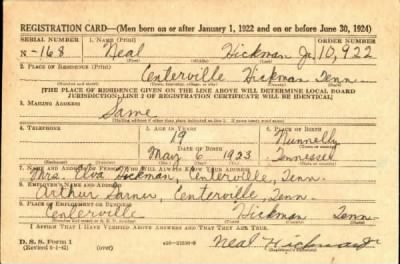 REGISTRATION CARD—(Men born on or after January 1, 1922 and on or before June 30, 1924)
SERIAL NUMBER 1. NAME (Print) ORDER NUMBER
N-168 Neal Hickman Jr. 10,922
(First) (Middle) (Last)
2. PLACE OF RESIDENCE (Print)
Centerville Hickman Tenn.
[THE PLACE OF RESIDENCE GIVEN ON THE LINE ABOVE WILL DETERMINE LOCAL BOARD
JURISDICTION; LINE 2 OF REGISTRATION CERTIFICATE WILL BE IDENTICAL]
3. MAILING ADDRESS
Same
4. TELEPHONE 5. AGE IN YEARS 6. PLACE OF BIRTH
19 Nunnelly
DATE OF BIRTH
May 6 1923 Tennessee
7. NAME AND ADDRESS OF PERSON WHO WILL ALWAYS KNOW YOUR ADDRESS
Mrs. Elva Hickman, Centerville, Tenn.
8. EMPLOYER'S NAME AND ADDRESS
Arthur Garner, Centerville, Tenn.
9. PLACE OF EMPLOYMENT OR BUSINESS
Centerville Hickman Tenn.
I AFFIRM THAT I HAVE VERIFIED ABOVE ANSWERS AND THAT THEY ARE TRUE.
D. S. S. Form 1
(over)
Neal Hickman Jr